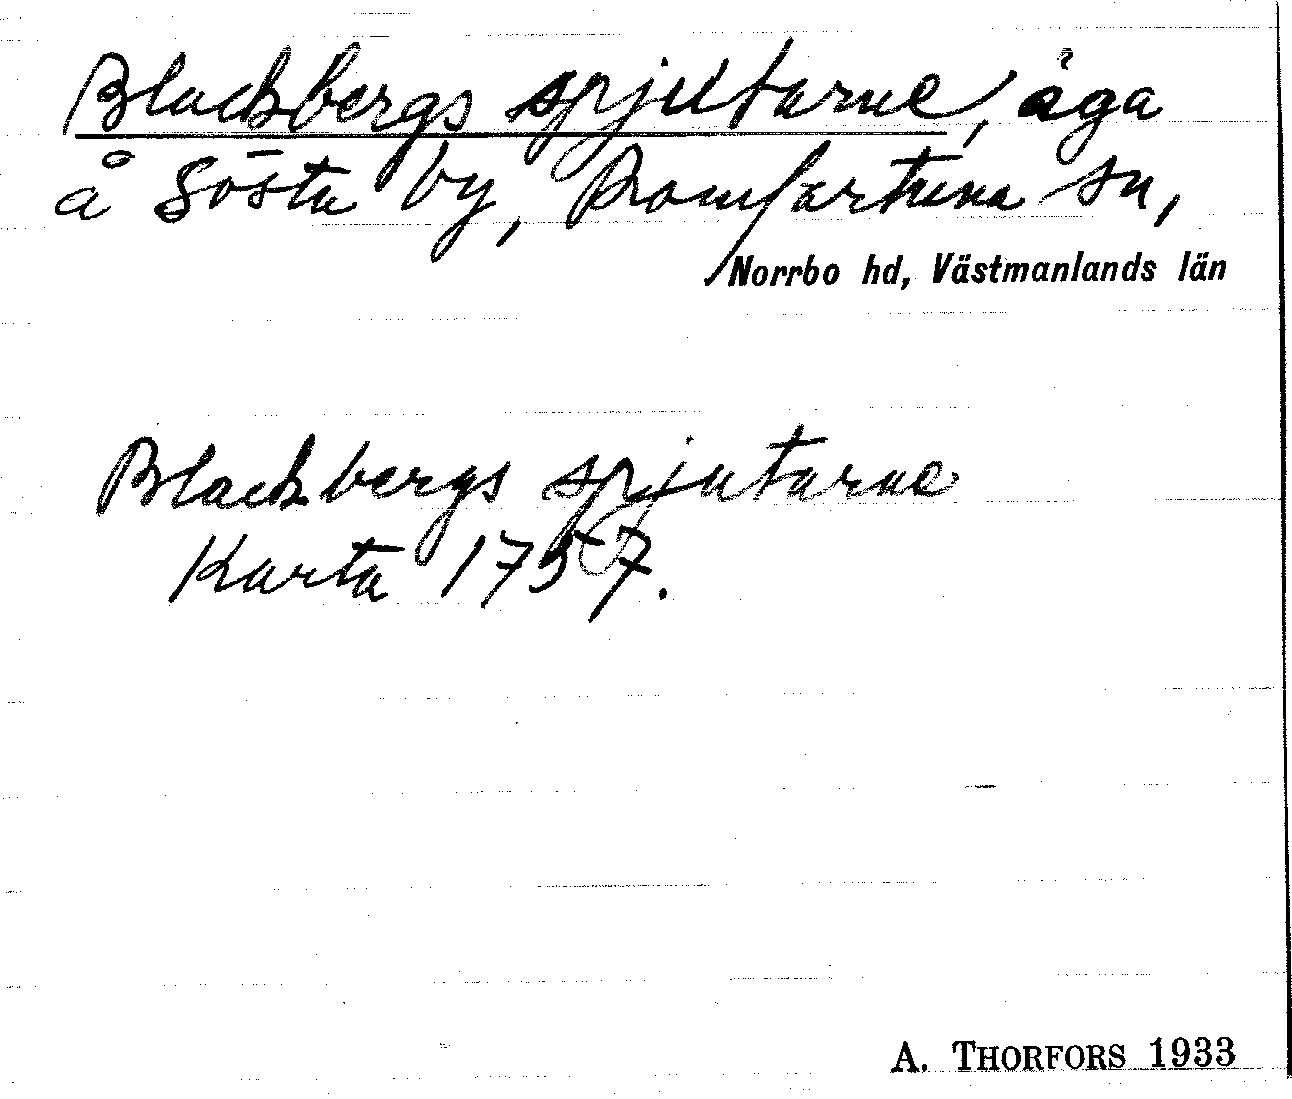 Blackbergs spjutarne, äga
å Gösta by, Romfartuna sn,
Norrbo hd, Västmanlands län
Blackbergs spjutarne
Karta 1757.
A. THORFORS 1933